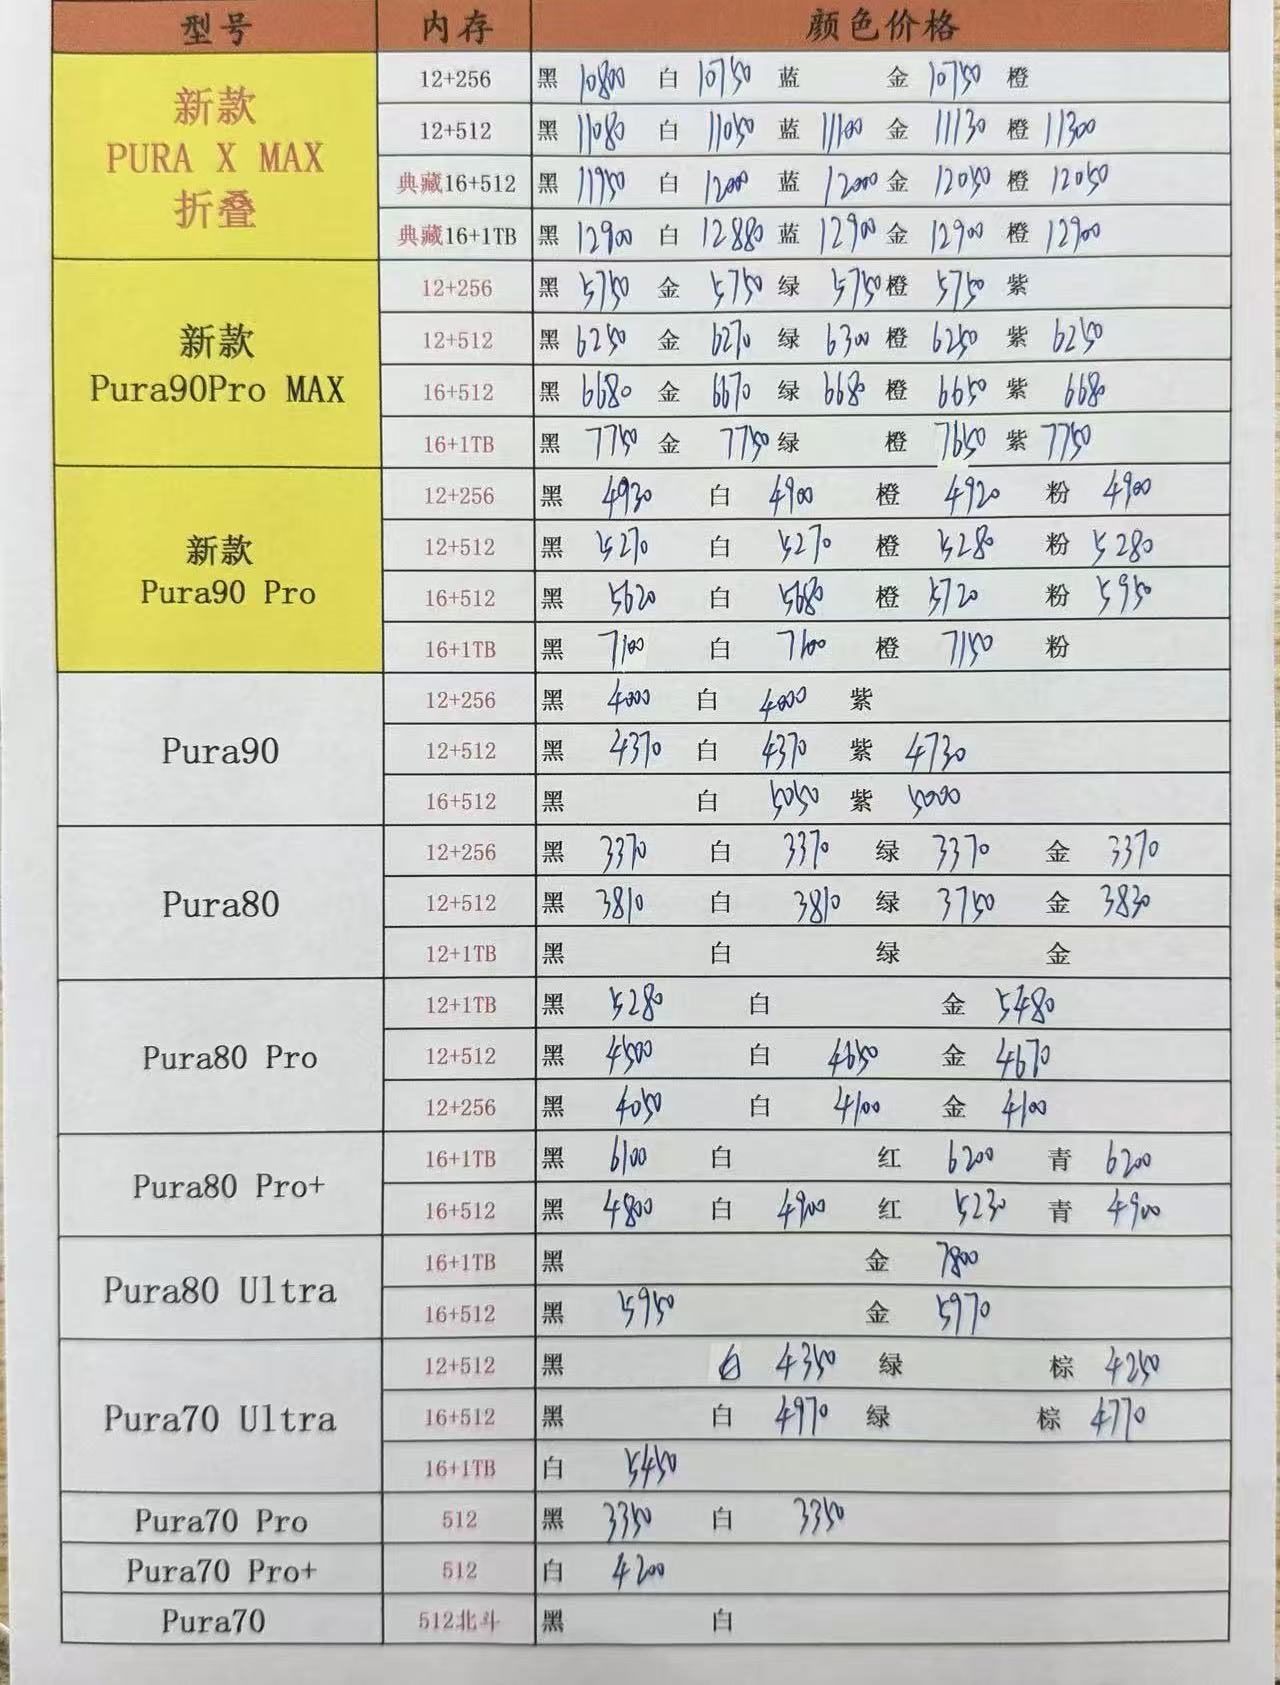 型号 内存 颜色价格
新款
PURA X MAX
折叠
12+256 黑 10800 白 10750 蓝 金 10750 橙
12+512 黑 11080 白 11050 蓝 11100 金 11130 橙 11300
典藏16+512 黑 11950 白 12000 蓝 12000 金 12050 橙 12050
典藏16+1TB 黑 12900 白 12880 蓝 12900 金 12900 橙 12900
新款
Pura90Pro MAX
12+256 黑 5750 金 5750 绿 5750 橙 5750 紫
12+512 黑 6250 金 6270 绿 6300 橙 6250 紫 6250
16+512 黑 6680 金 6670 绿 6680 橙 6650 紫 6680
16+1TB 黑 7750 金 7750 绿 橙 7650 紫 7750
新款
Pura90 Pro
12+256 黑 4930 白 4900 橙 4920 粉 4900
12+512 黑 5270 白 5270 橙 5280 粉 5280
16+512 黑 5620 白 5680 橙 5720 粉 5950
16+1TB 黑 7100 白 7100 橙 7150 粉
Pura90
12+256 黑 4000 白 4000 紫
12+512 黑 4370 白 4370 紫 4730
16+512 黑 白 5050 紫 5000
Pura80
12+256 黑 3370 白 3370 绿 3370 金 3370
12+512 黑 3810 白 3810 绿 3750 金 3830
12+1TB 黑 白 绿 金
Pura80 Pro
12+1TB 黑 5280 白 金 5480
12+512 黑 4500 白 4650 金 4670
12+256 黑 4050 白 4100 金 4100
Pura80 Pro+
16+1TB 黑 6100 白 红 6200 青 6200
16+512 黑 4800 白 4900 红 5230 青 4900
Pura80 Ultra
16+1TB 黑 金 7800
16+512 黑 5950 金 5970
Pura70 Ultra
12+512 黑 白 4350 绿 棕 4250
16+512 黑 白 4970 绿 棕 4770
16+1TB 白 5450
Pura70 Pro 512 黑 3350 白 3350
Pura70 Pro+ 512 白 4200
Pura70 512北斗 黑 白